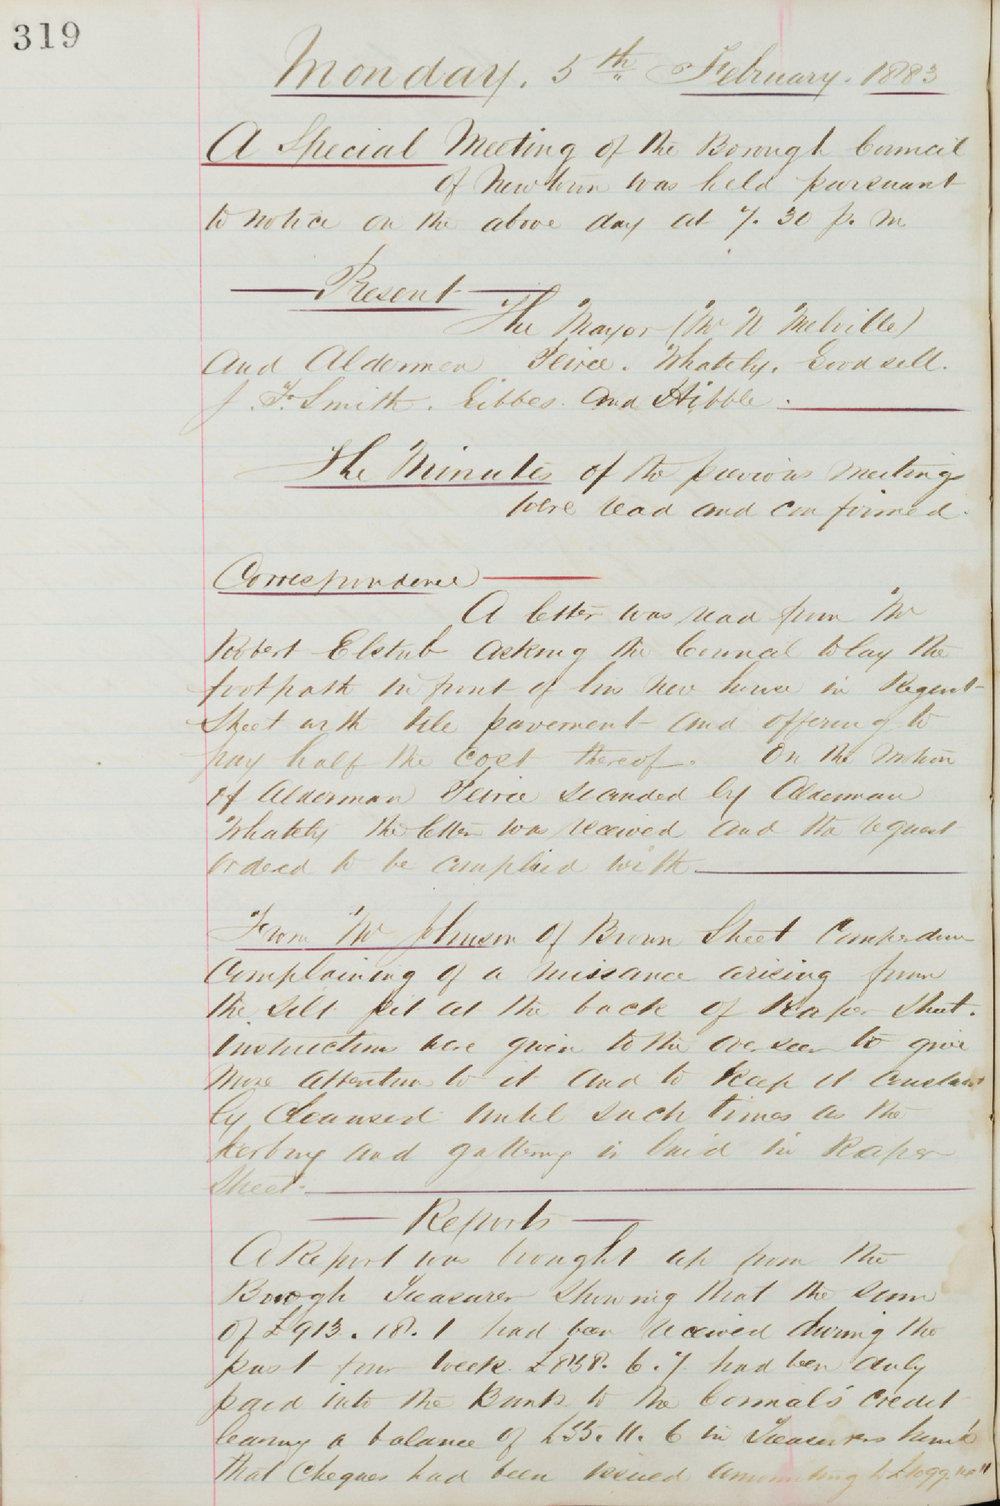 319
Monday. 5th February. 1883
A Special Meeting of the Borough Council
of Newtown was held pursuant
to notice on the above day at 7. 30 p. m
Present
The Mayor (Mr W Melville)
and Aldermen Peirce. Whately. Goodsell.
J. F. Smith. Gibbes. and Hibble.
The Minutes of the previous meetings
were read and confirmed.
Correspondence
A letter was read from Mr
Robert Elstub asking the Council to lay the
footpath in front of his new house in Regent
Street with tile pavement and offering to
pay half the cost thereof. On the motion
of Alderman Peirce seconded by Alderman
Whately the letter was received and the request
ordered to be complied with
From Mr Johnson of Brown Street Camperdown
Complaining of a nuissance arising from
the silt pit at the back of Raper Street.
Instructions were given to the overseer to give
more attention to it and to keep it constant
ly cleansed until such times as the
kerbing and guttering is laid in Raper
Street.
Reports
A Report was brought up from the
Borough Treasurer showing that the sum
of £913. 18. 1 had been received during the
past four week £838. 6. 7 had been duly
paid into the Bank to the Council's credit
leaving a balance of in Treasurers hands
that Cheques had been issued amounting to